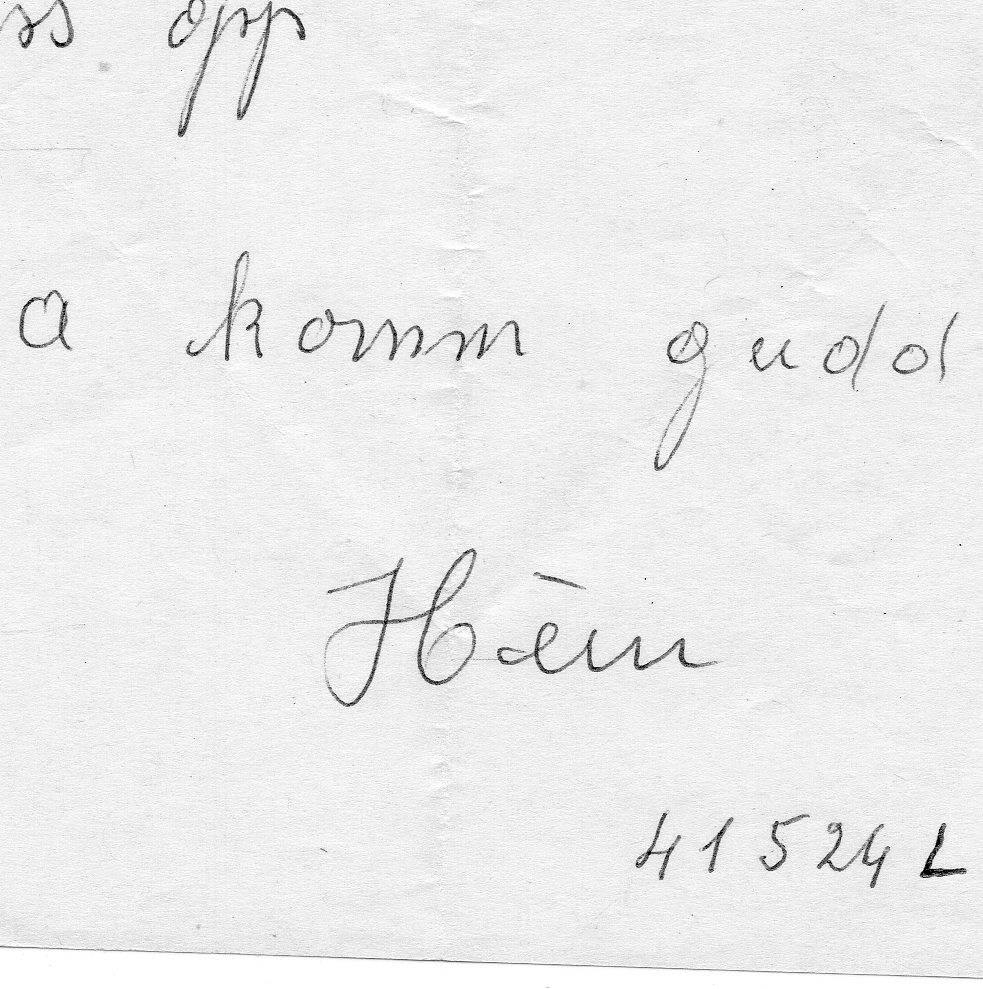 ss opp
a komm gudd
Hein
41524 L